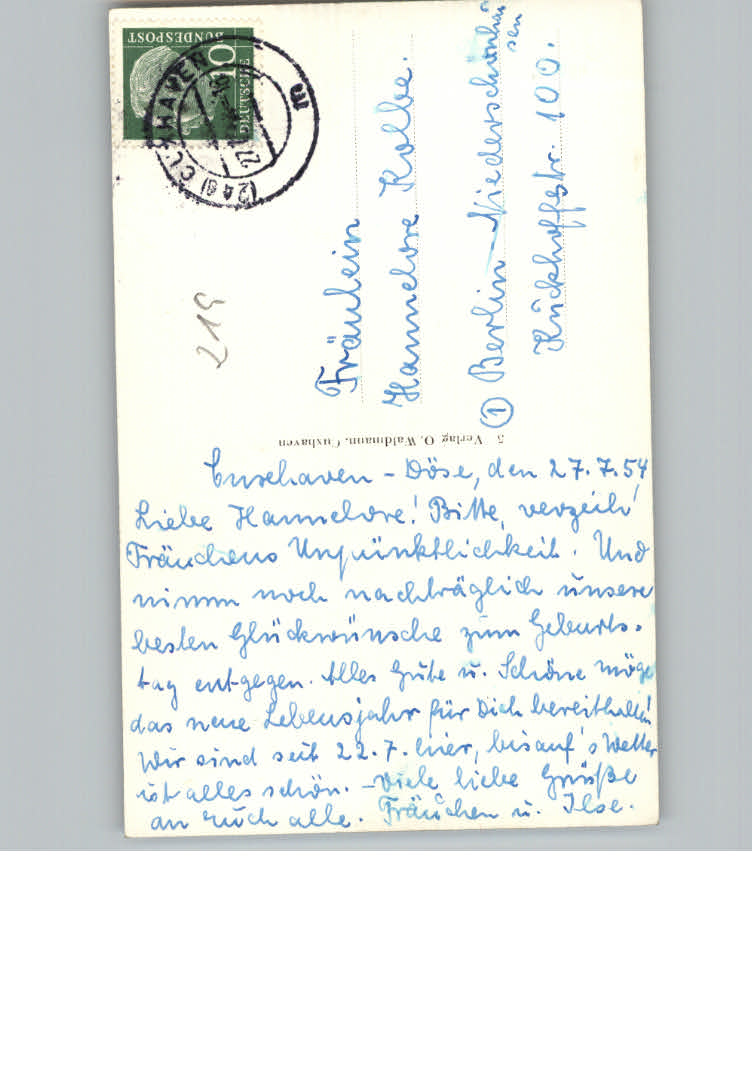 Cuxhaven - Döse, den 27.7.54
Liebe Hannelore! Bitte, verzeih'
Fräuchens Unpünktlichkeit. Und
nimm noch nachträglich unsere
besten Glückwünsche zum Geburts-
tag entgegen. Alles Gute u. Schöne möge
das neue Lebensjahr für Dich bereithalten!
Wir sind seit 22.7. hier, bis auf's Wetter
ist alles schön. - Viele liebe Grüße
an Euch alle. Fräuchen u. Ilse.
3 Verlag O. Waldmann, Cuxhaven
Fräulein
Hannelore Kolbe.
① Berlin-Niederschönhau
sen
Kückhoffstr. 100.
219
DEUTSCHE
BUNDESPOST
10
(24a) CUXHAVEN